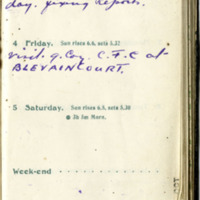 day. fixing reports.
4 Friday. Sun rises 6.6, sets 5.37
visit. 9. Coy. C.F.C at
BLEVAINCOURT.
5 Saturday. Sun rises 6.8, sets 5.30
3h 5m Morn.
Week-end